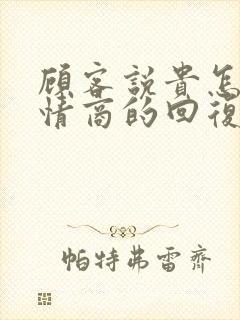 顧客說貴怎
情商的回復
帕特弗雷齊